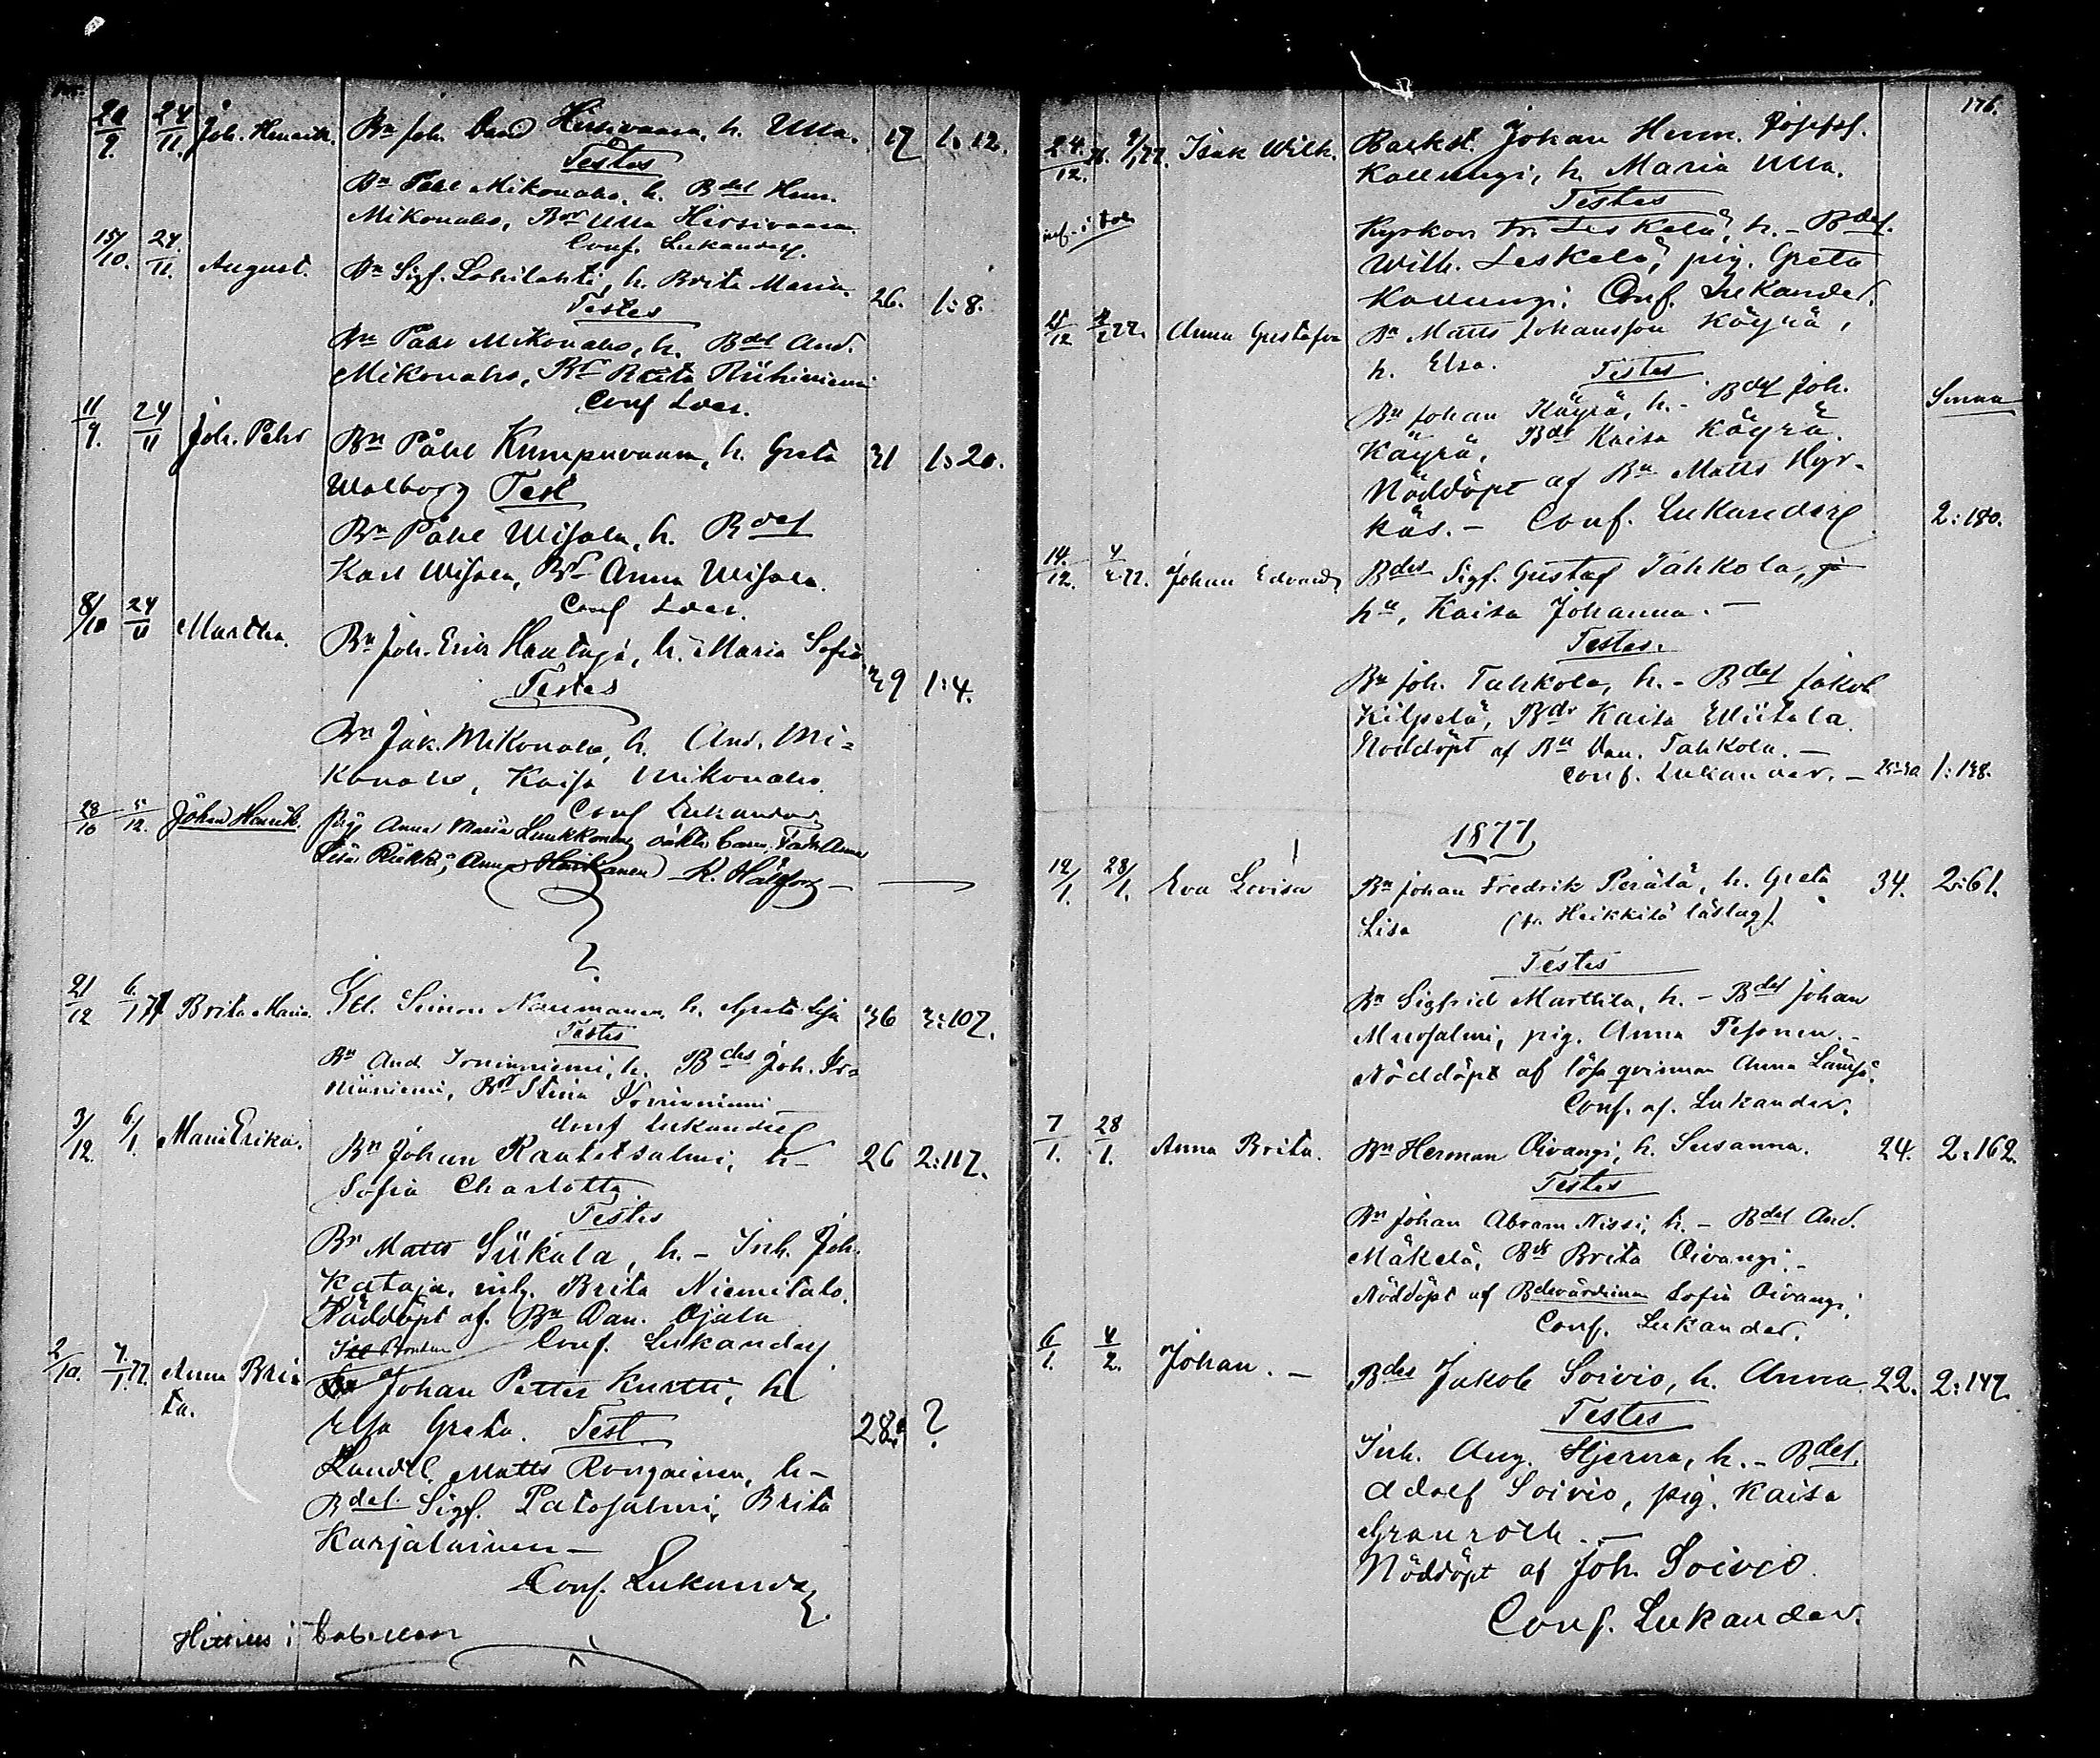 20/9. 24/11. Joh. Henrik. Bn Joh. Dav Hirsivaara, h. Ulla. 17 1:12.
Testes
Bn Påhl Mikonaho, h. Bdes Hem.
Mikonaho, Bdr Ulla Hirsivaara
Conf. Lukander.
15/10. 24/11. August. Bn Sigf. Lohilahti, h. Brita Maria. 26. 1:8.
Testes
Bn Påhl Mikonaho, h. Bdes And.
Mikonaho, Bdr Brita Riihiniemi
Conf Lder.
11/9. 24/11 Joh. Pehr Bn Påhl Kumpuvaara, h. Greta 31 1:20.
Walborg Test
Bn Påhl Wisala, h. Bdes
Karl Wisala, Bdr Anna Wisala.
Conf Lder.
8/10 24/11 Martha. Bn Joh. Erik Hautaja, h. Maria Sofia 39 1:4.
Testes
Bn Jak. Mikonaho, h. And. Mi=
konaho, Kaisa Mikonaho.
Conf Lukander
28/10 5/12. Johan Henrik. pig Anna Maria Luukkonen oäkta barn. Anna
Lisa
21/12 6/1 77 Brita Maria. Simon Naumanen, h. Greta Lisa 36 3:107.
Testes
Bn And Irniniemi, h. Bdes Joh. Ir=
niniemi, Bdr Stina Irniniemi
Conf Lukander
3/12. 6/1. Maria Erika. Bn Johan Rautetsalmi, h- 26 2:117.
Sofia Charlotta
Testes
Bn Matts Siikala, h.- Inh. Joh.
Kataja, inh. Brita Niemitalo.
Nöddöpt af. Bn Dan. Ojala
Conf. Lukander
2/10. 7/1.77. Anna Bri= Johan Petter Kurtti, h 28. ?
ta.
Elsa Greta. Test.
Landtl. Matts Rongainen, h-
Bdes. Sigf. Patosalmi, Brita
Karjalainen-
Conf. Lukander
Hittills i tabellen
176.
24./12. 76. 9/1 77. Isak Wilh. Backst. Johan Herm. Josefss.
Kallungi, h. Maria Ulla.
Testes
Kyrkov. Leskelä, h.- Bdes.
Wilh. Leskelä, pig. Greta
Kallungi. Conf. Lukander.
4/2 77. Anna Gustafva Bn Matts Johansson Käyrä,
h. Elsa. Testes
Bn Johan Käyrä, h.- Bdes Joh. Summa
Käyrä, Bdr Kaisa Käyrä.
Nöddöpt af Bn Matts Hyr-
käs.- Conf. Lukander 2:180.
14./12. 4/2 77. Johan Edvard Bdes Sigf. Gustaf Tahkola,
hu, Kaisa Johanna.-
Testes.
Bn Joh. Tahkola, h.- Bdes Jakob
Kilpelä, Bdr Kaisa Wiitala.
Nöddöpt af Bn Dan. Tahkola.-
Conf. Lukander.- 25-30 1:138.
1877
12/1. 28/1. Eva Lovisa Bn Johan Fredrik Perätä, h. Greta 34. 2:61.
Lisa (fr. Heikkilä läslag).
Testes
Bn Sigfrid Marttila, h.- Bdes Johan
Mursalmi, pig. Anna Pesonen.-
Nöddöpt af lösa qvinnan Anna Lämsä.
Conf. af. Lukander.
7/1. 28/1. Anna Brita. Bn Herman Oivangi, h. Susanna. 24. 2:162.
Testes
Bn Johan Abram Nissi, h.- Bdes And.
Mäkelä, Bdr Brita Oivangi.-
Nöddöpt af Bdevärdinnan Sofia Oivangi.
Conf. Lukander.
6/1. 4/2. Johan.- Bdes Jakob Soivio, h. Anna. 22. 2:147.
Testes
Inh. Aug. Stjerna, h.- Bdes.
Adolf Soivio, pig. Kaisa
Granroth.-
Nöddöpt af Joh. Soivio.
Conf. Lukander.